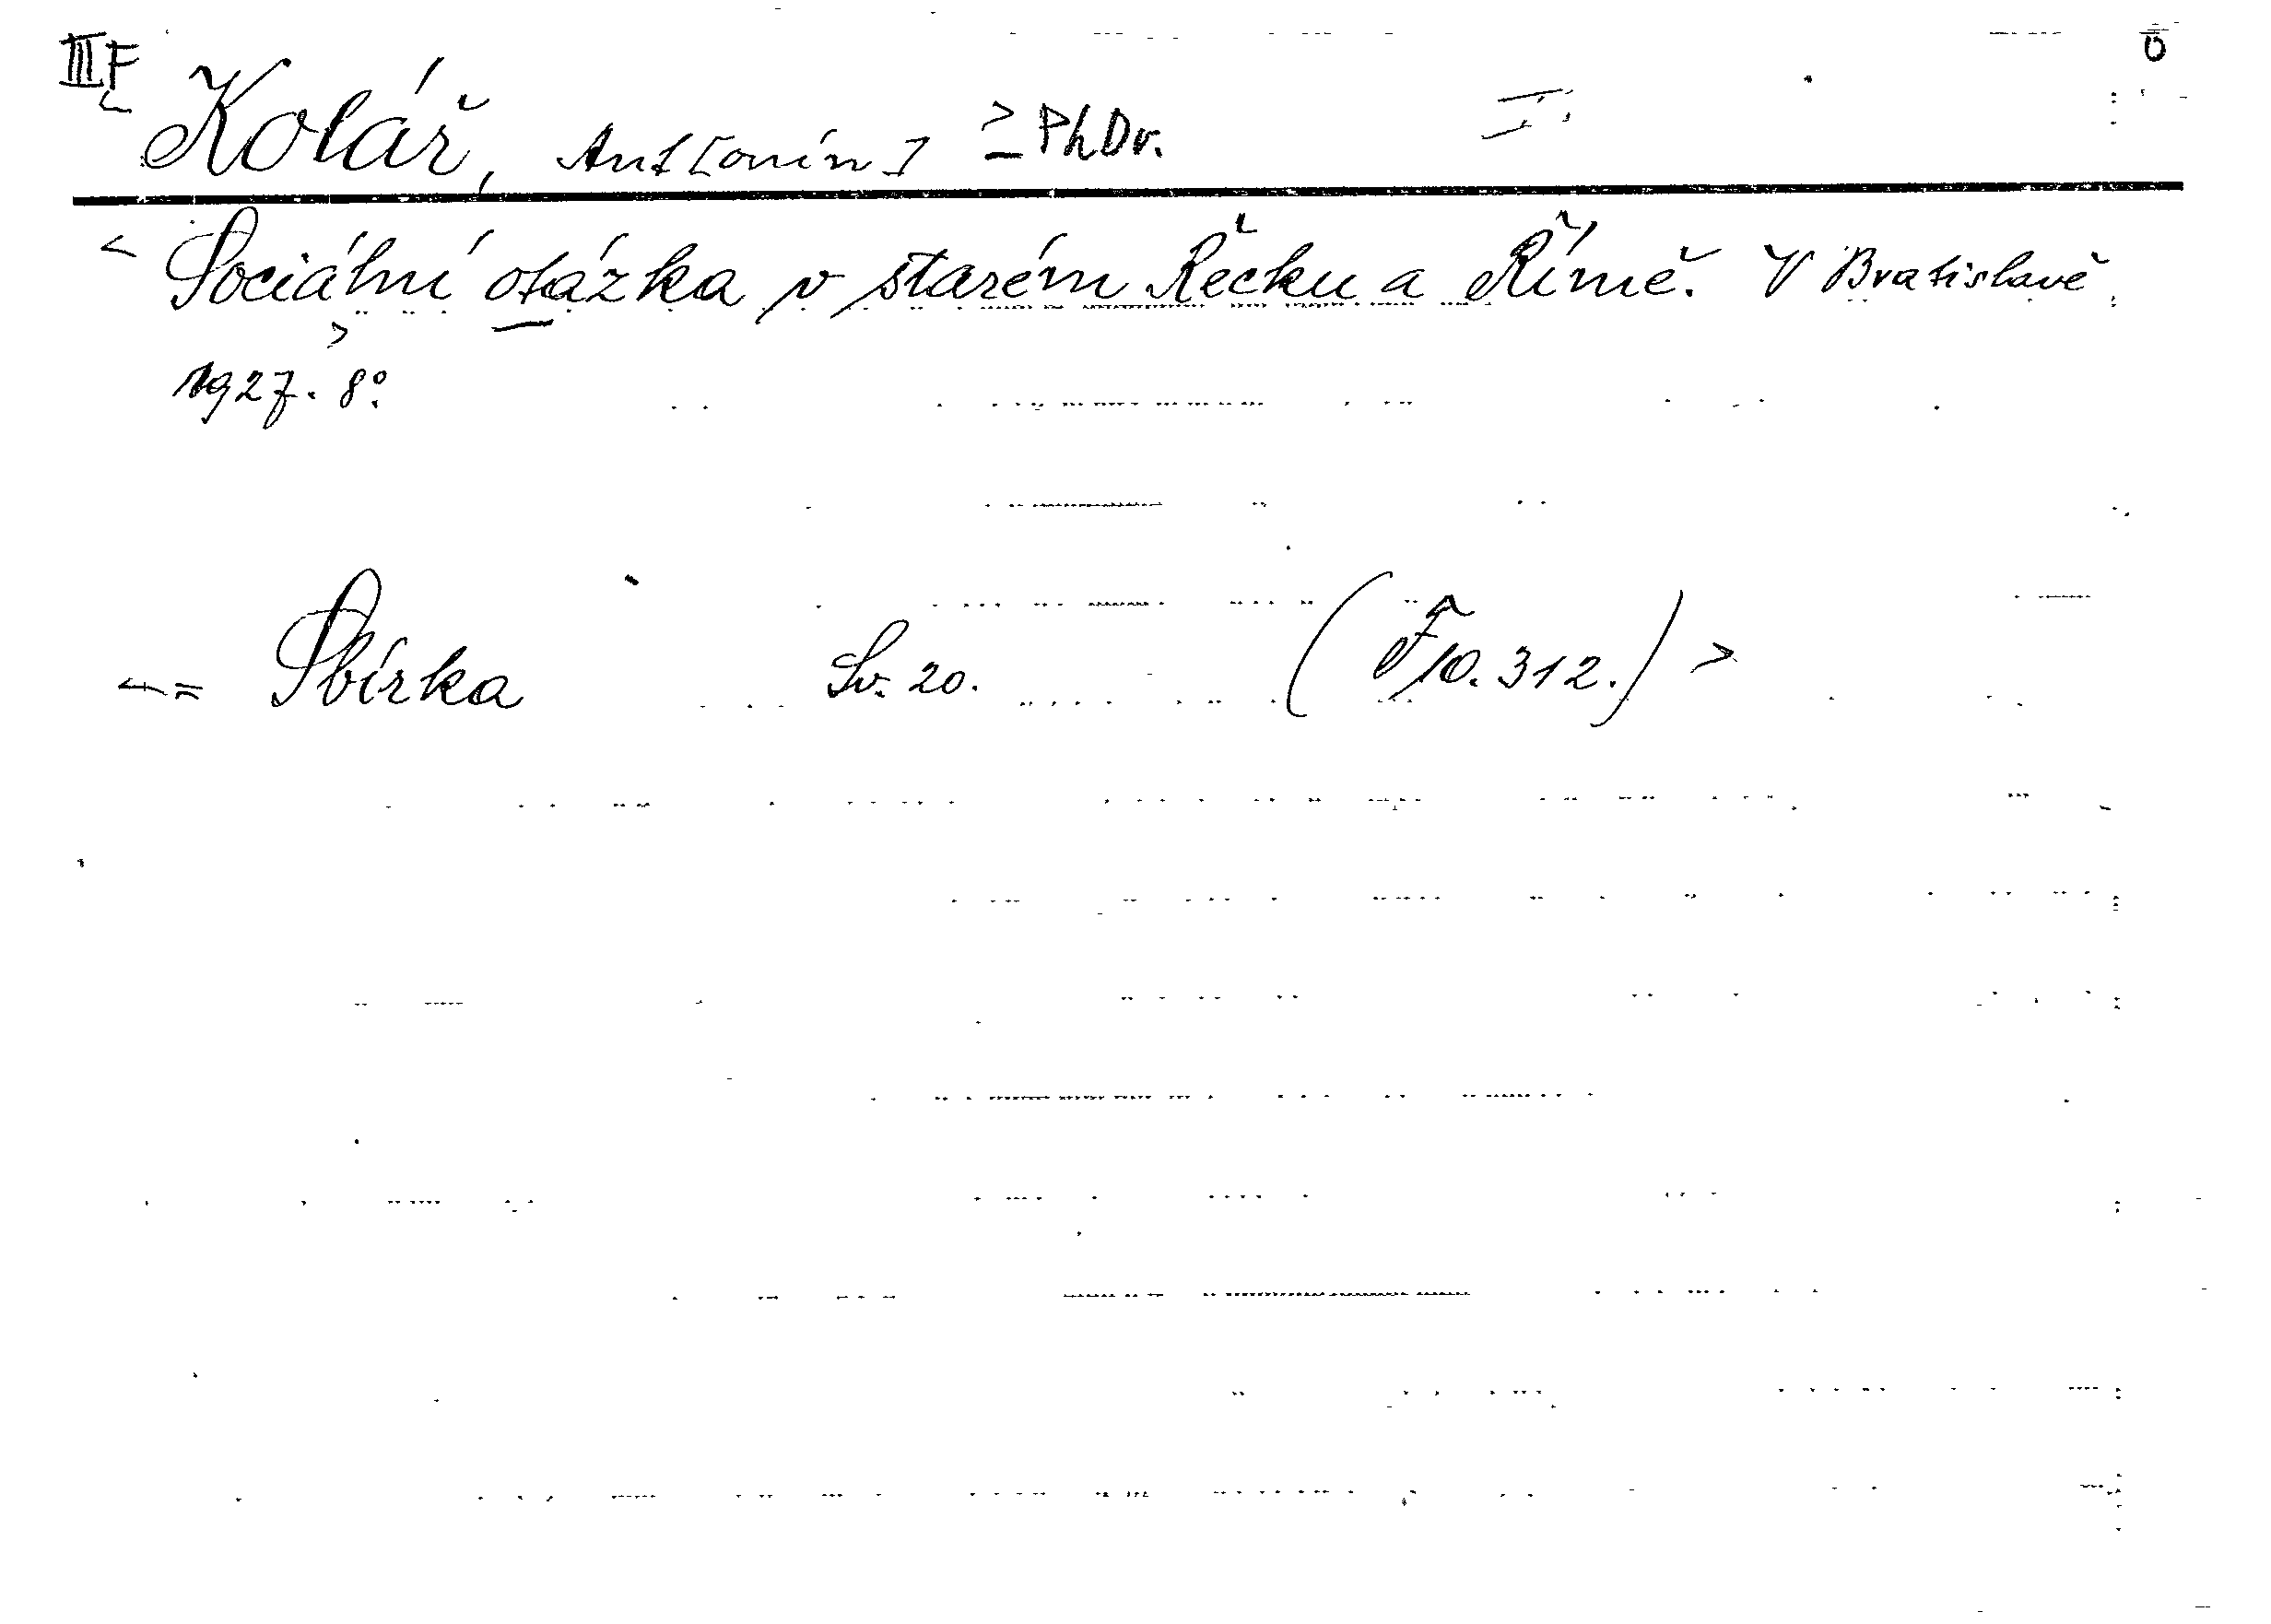 III F
Kolář, Ant[onín] PhDr.
Sociální otázka v starém Řecku a Římě. V Bratislavě
1927. 8°.
= Sbírka Sv. 20. (F 10. 312.)